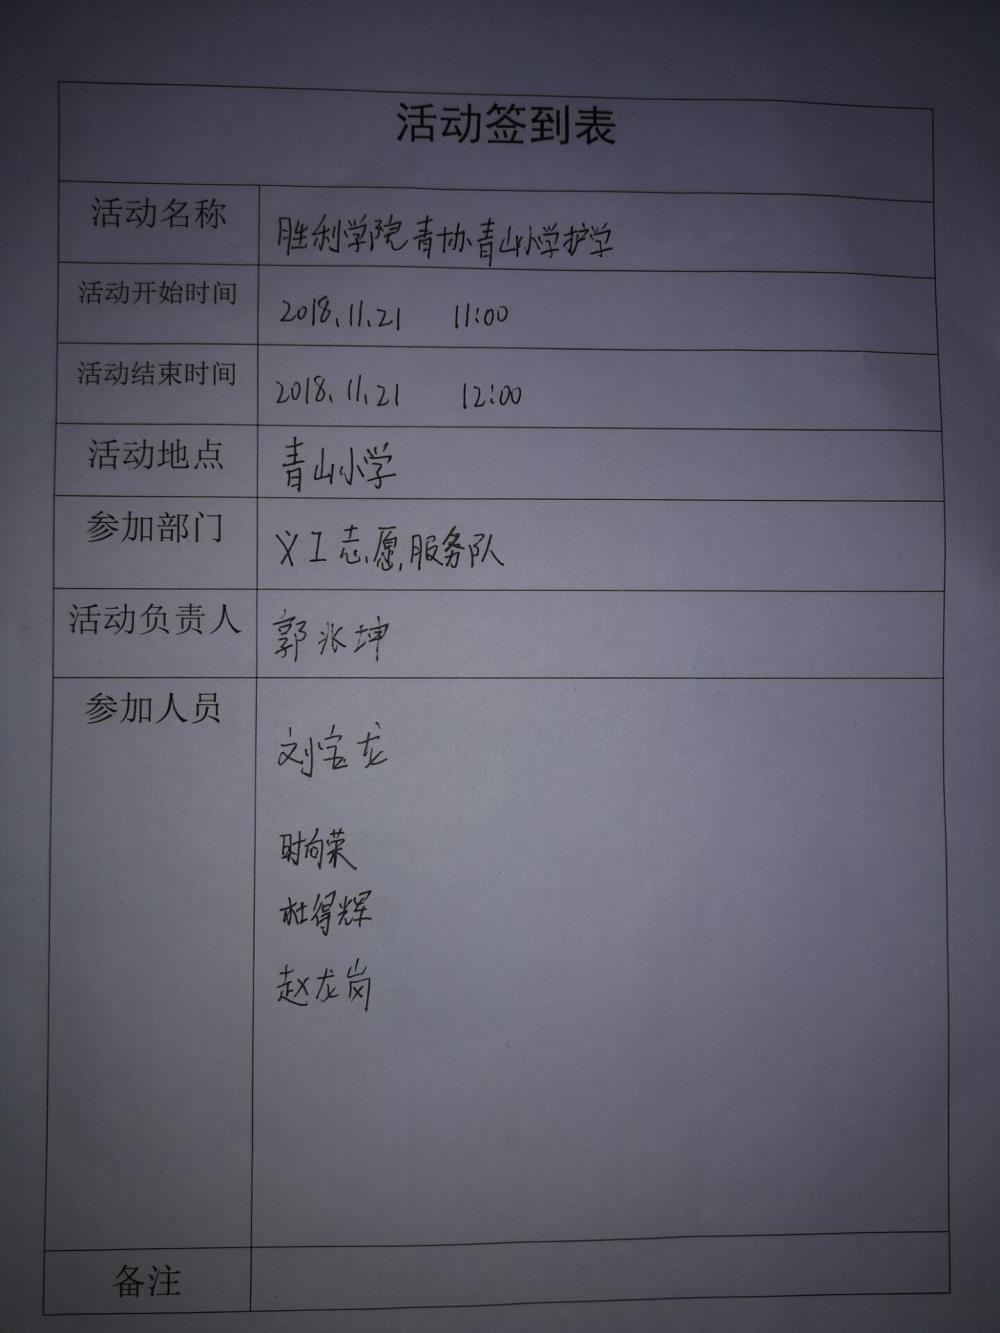 活动签到表
活动名称 胜利学院青协青山小学护学
活动开始时间 2018.11.21 11:00
活动结束时间 2018.11.21 12:00
活动地点 青山小学
参加部门 义工志愿服务队
活动负责人 郭兆坤
参加人员
刘宝龙
时向荣
杜得辉
赵龙岗
备注